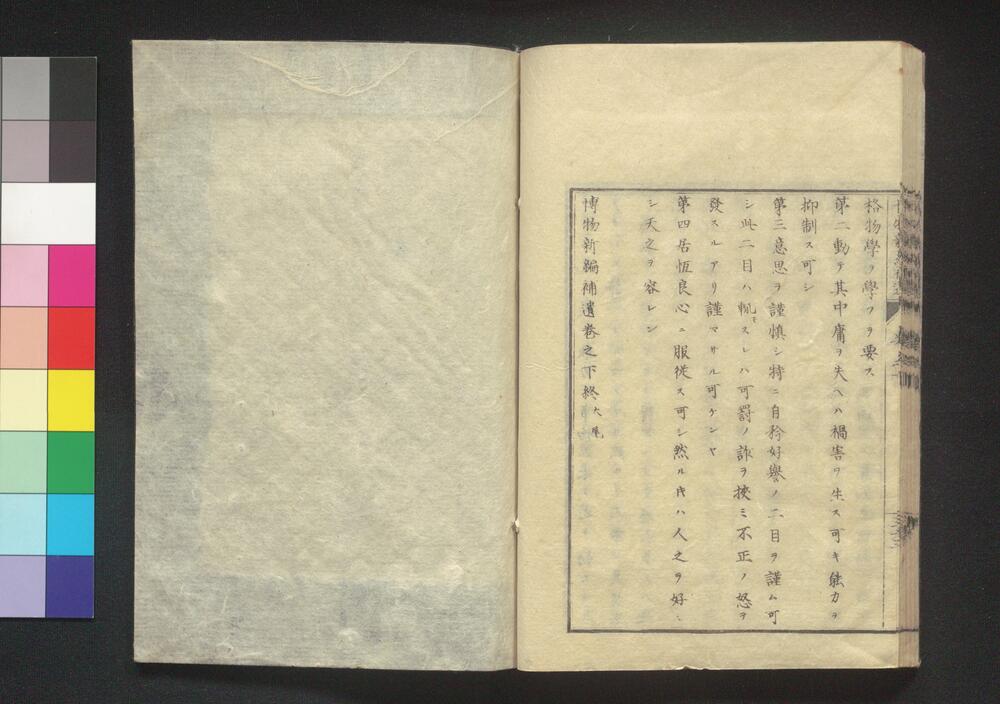 格物學ヲ學フヲ要ス
第二動テ其中庸ヲ失ヘハ禍害ヲ生ス可キ能力ヲ
抑制ス可シ
第三意思ヲ謹慎シ特ニ自矜好譽ノ二目ヲ謹ム可
シ此二目ハ動モスレハ可罰ノ詐ヲ挾ミ不正ノ怒ヲ
發スルアリ謹マサル可ケンヤ
第四居恆良心ニ服從ス可シ然ル片ハ人之ヲ好ミ
シ天之ヲ容レン
博物新編補遺卷之下終 大尾